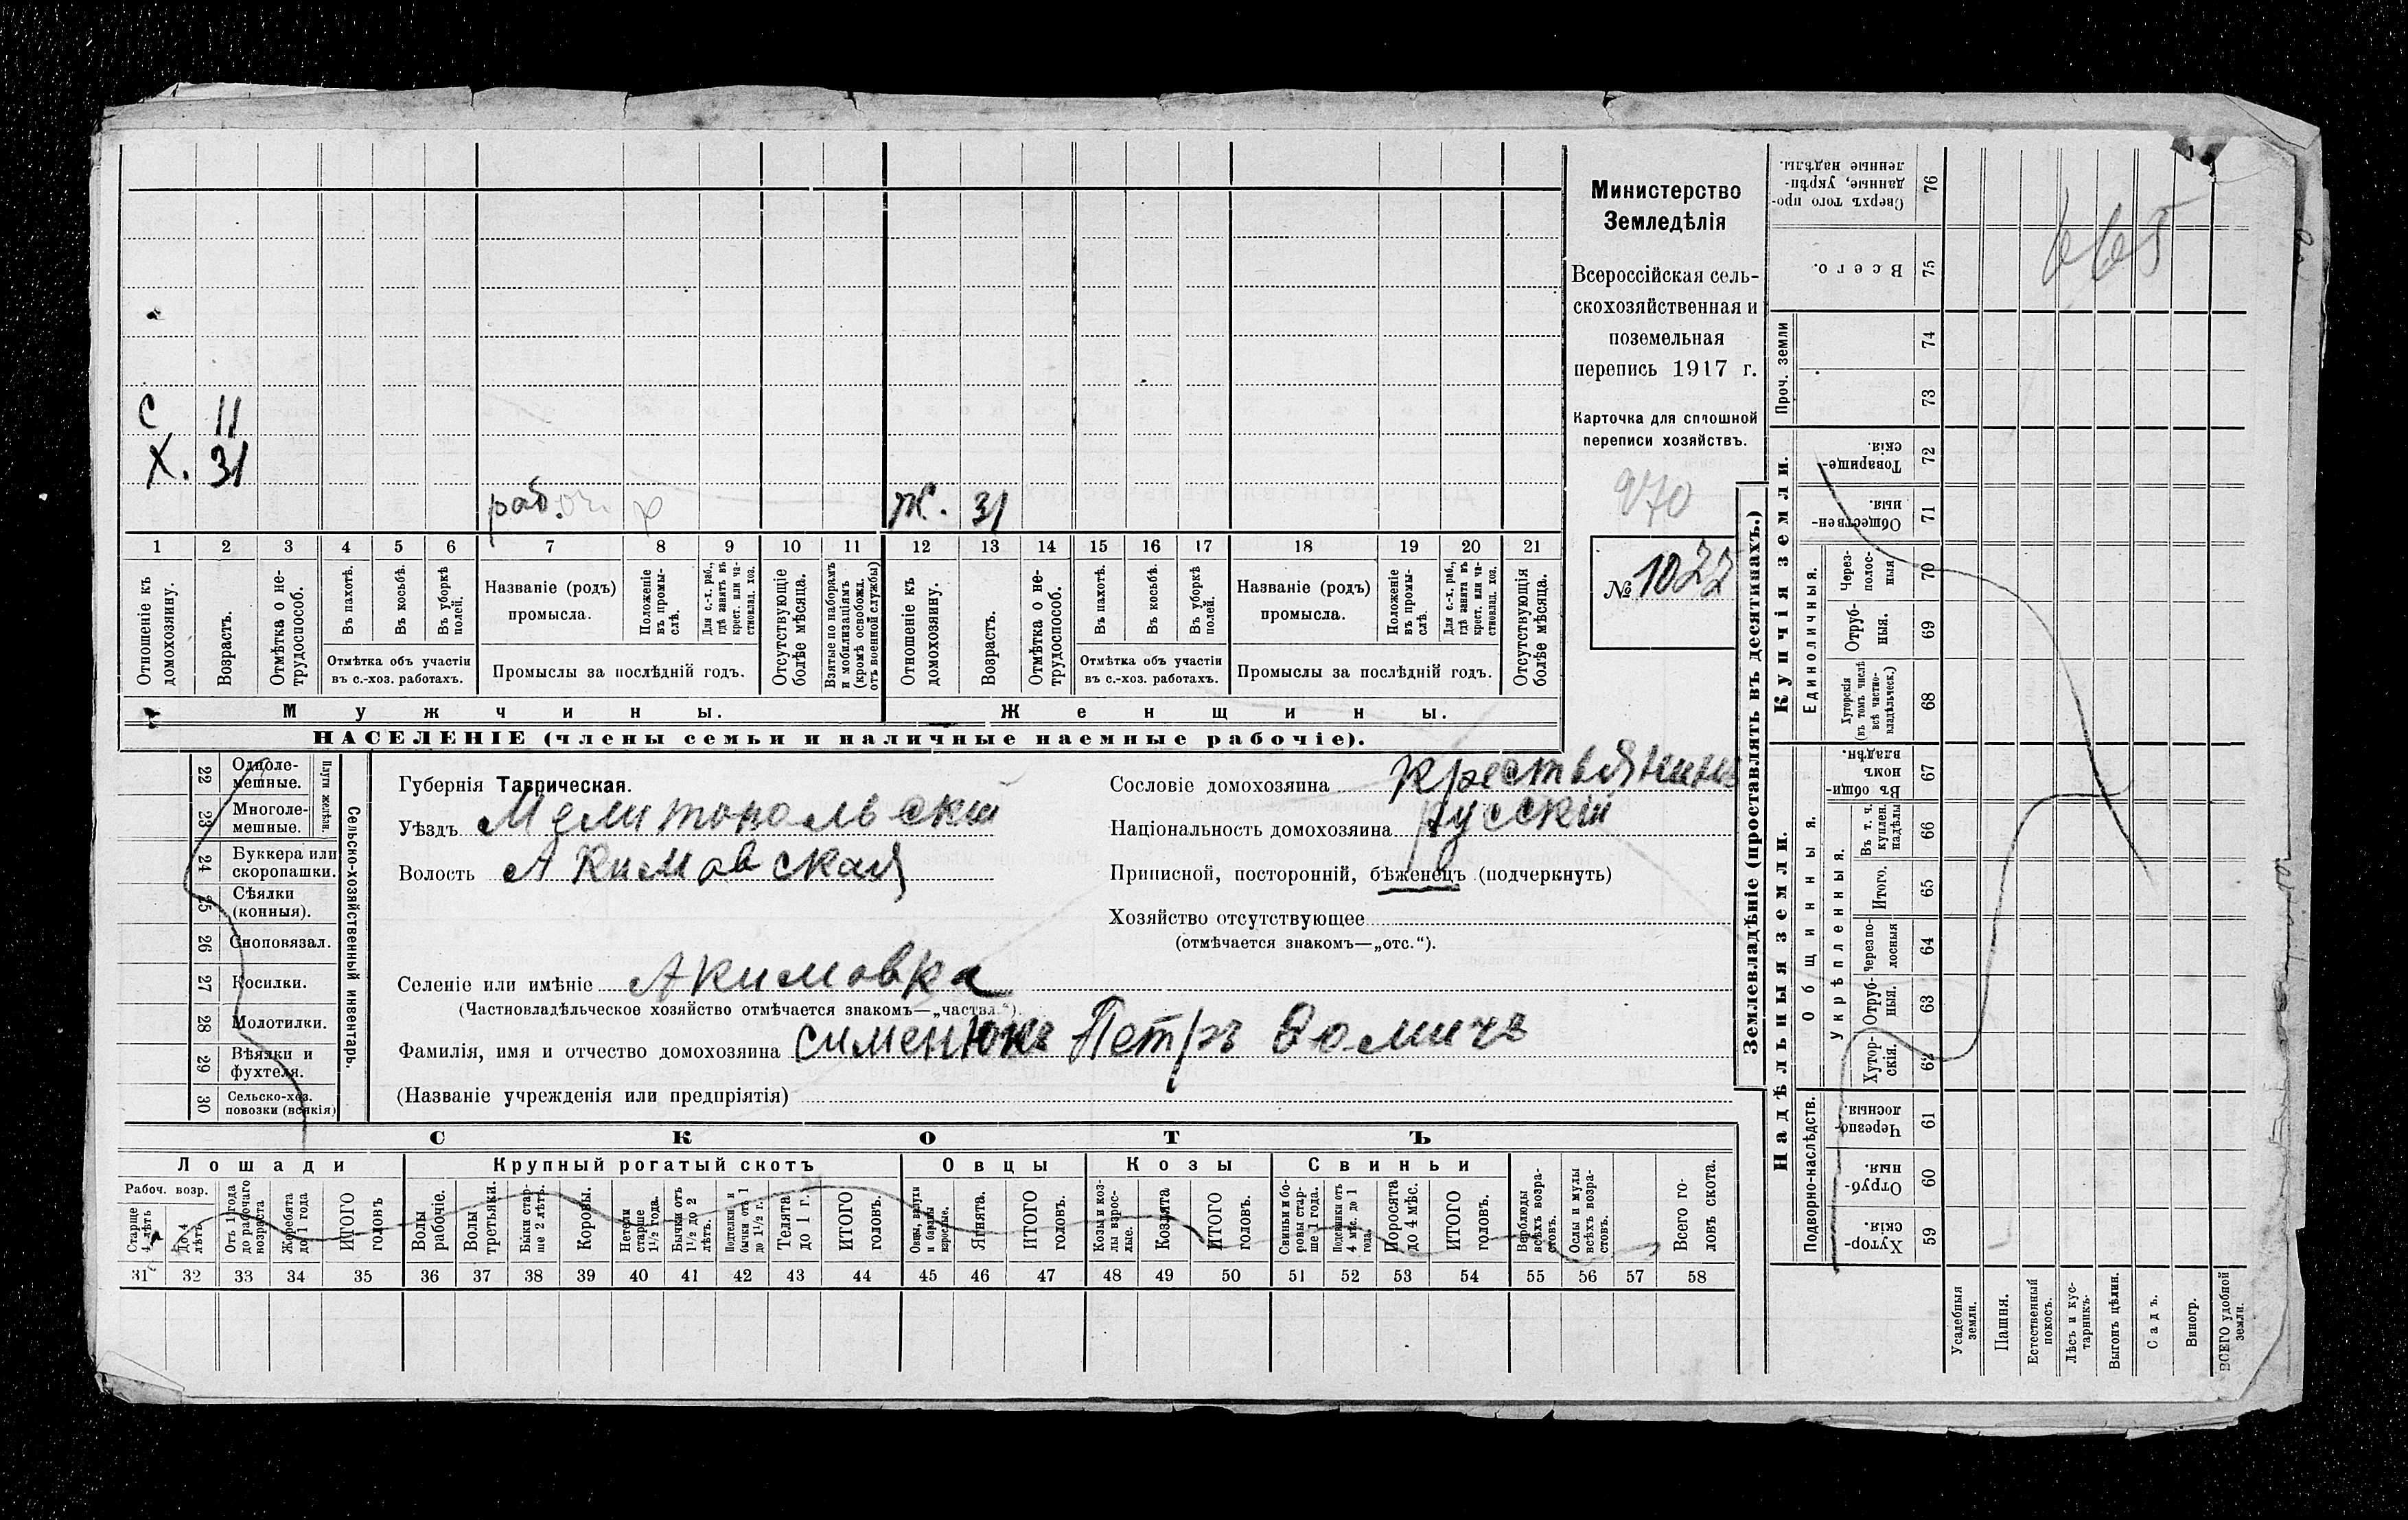 Министерство
Земледѣлія
Всероссійская сель-
скохозяйственная и
поземельная
перепись 1917 г.
Карточка для сплошной
переписи хозяйствъ.
970
№ 1022
С 11
Х. 31
рабоч. р
Ж. 31
1 2 3 4 5 6 7 8 9 10 11 12 13 14 15 16 17 18 19 20 21
Отношеніе къ домохозяину.
Возрастъ.
Отмѣтка о не-трудоспособ.
Въ пахотѣ.
Въ косьбѣ.
Въ уборкѣ полей.
Отмѣтка объ участіи
въ с.-хоз. работахъ.
Названіе (родъ)
промысла.
Положеніе въ промы-слѣ.
Для с.-х. раб., гдѣ занятъ въ крест. или ча-стновлад. хоз.
Промыслы за послѣдній годъ.
Отсутствующіе болѣе мѣсяца.
Взятые по наборамъ и мобилизаціямъ (кромѣ освобожд. отъ военной службы)
Отношеніе къ домохозяину.
Возрастъ.
Отмѣтка о не-трудоспособ.
Въ пахотѣ.
Въ косьбѣ.
Въ уборкѣ полей.
Отмѣтка объ участіи
въ с.-хоз. работахъ.
Названіе (родъ)
промысла.
Положеніе въ промы-слѣ.
Для с.-х. раб., гдѣ занята въ крест. или ча-стновлад. хоз.
Промыслы за послѣдній годъ.
Отсутствующія болѣе мѣсяца.
Мужчины.
Женщины.
НАСЕЛЕНІЕ (члены семьи и наличные наемные рабочіе).
22 Одноле-мешные.
23 Многоле-мешные.
Плуги желѣзн.
24 Буккера или скоропашки.
25 Сѣялки (конныя).
26 Сноповязал.
27 Косилки.
28 Молотилки.
29 Вѣялки и фухтеля.
30 Сельско-хоз. повозки (всякія)
Сельско-хозяйственный инвентарь.
Губернія Таврическая.
Уѣздъ Мелитопольскій
Волость Акимовская
Сословіе домохозяина крестьянинъ
Національность домохозяина русскій
Приписной, посторонній, бѣженецъ (подчеркнуть)
Хозяйство отсутствующее
(отмѣчается знакомъ—„отс.“).
Селеніе или имѣніе Акимовка
(Частновладѣльческое хозяйство отмѣчается знакомъ—„частвл.“).
Фамилія, имя и отчество домохозяина Сименюкъ Петръ Ѳомичъ
(Названіе учрежденія или предпріятія)
СКОТЪ
Лошади
Рабоч. возр.
Старше 4 лѣтъ
До 4 лѣтъ
Отъ 1 года до рабочаго возраста
Жеребята до 1 года
ИТОГО головъ
Крупный рогатый скотъ
Волы рабочіе.
Волы третьяки.
Быки стар-ше 2 лѣтъ.
Коровы.
Нетели старше 1½ года.
Бычки отъ 1½ до 2 лѣтъ.
Подтелки и бычки отъ 1 до 1½ г.
Телята до 1 г.
ИТОГО головъ.
Овцы
Овцы, валухи и бараны взрослые.
Ягнята.
ИТОГО головъ.
Козы
Козы и коз-лы взрос-лые.
Козлята
ИТОГО головъ.
Свиньи
Свиньи и бо-ровы стар-ше 1 года.
Подсвинки отъ 4 мѣс. до 1 года.
Поросята до 4 мѣс.
ИТОГО головъ.
Верблюды всѣхъ возра-стовъ.
Ослы и мулы всѣхъ возра-стовъ.
Всего го-ловъ скота.
31 32 33 34 35 36 37 38 39 40 41 42 43 44 45 46 47 48 49 50 51 52 53 54 55 56 57 58
Землевладѣніе (проставлять въ десятинахъ.)
665
Сверхъ того про-данные, укрѣп-ленные надѣлы. 76
Всего. 75
Проч. земли
74
73
Купчія земли.
Товарище-скія. 72
Обществен-ныя. 71
Единоличныя.
Через-полос-ныя 70
Отруб-ныя. 69
Хуторскія (въ томъ числѣ всѣ частно-владѣльческ.) 68
Надѣльныя земли.
Общинныя.
Въ общин-номъ владѣн. 67
Укрѣпленныя.
Въ т. ч. куплен. надѣлы 66
Итого. 65
Черезпо-лосныя 64
Отруб-ныя. 63
Хутор-скія. 62
Подворно-наслѣдств.
Черезпо-лосныя. 61
Отруб-ныя. 60
Хутор-скія. 59
Усадебныя земли.
Пашня.
Естественный покосъ.
Лѣсъ и кус-тарникъ.
Выгонъ цѣлин.
Садъ.
Виногр.
ВСЕГО удобной земли.